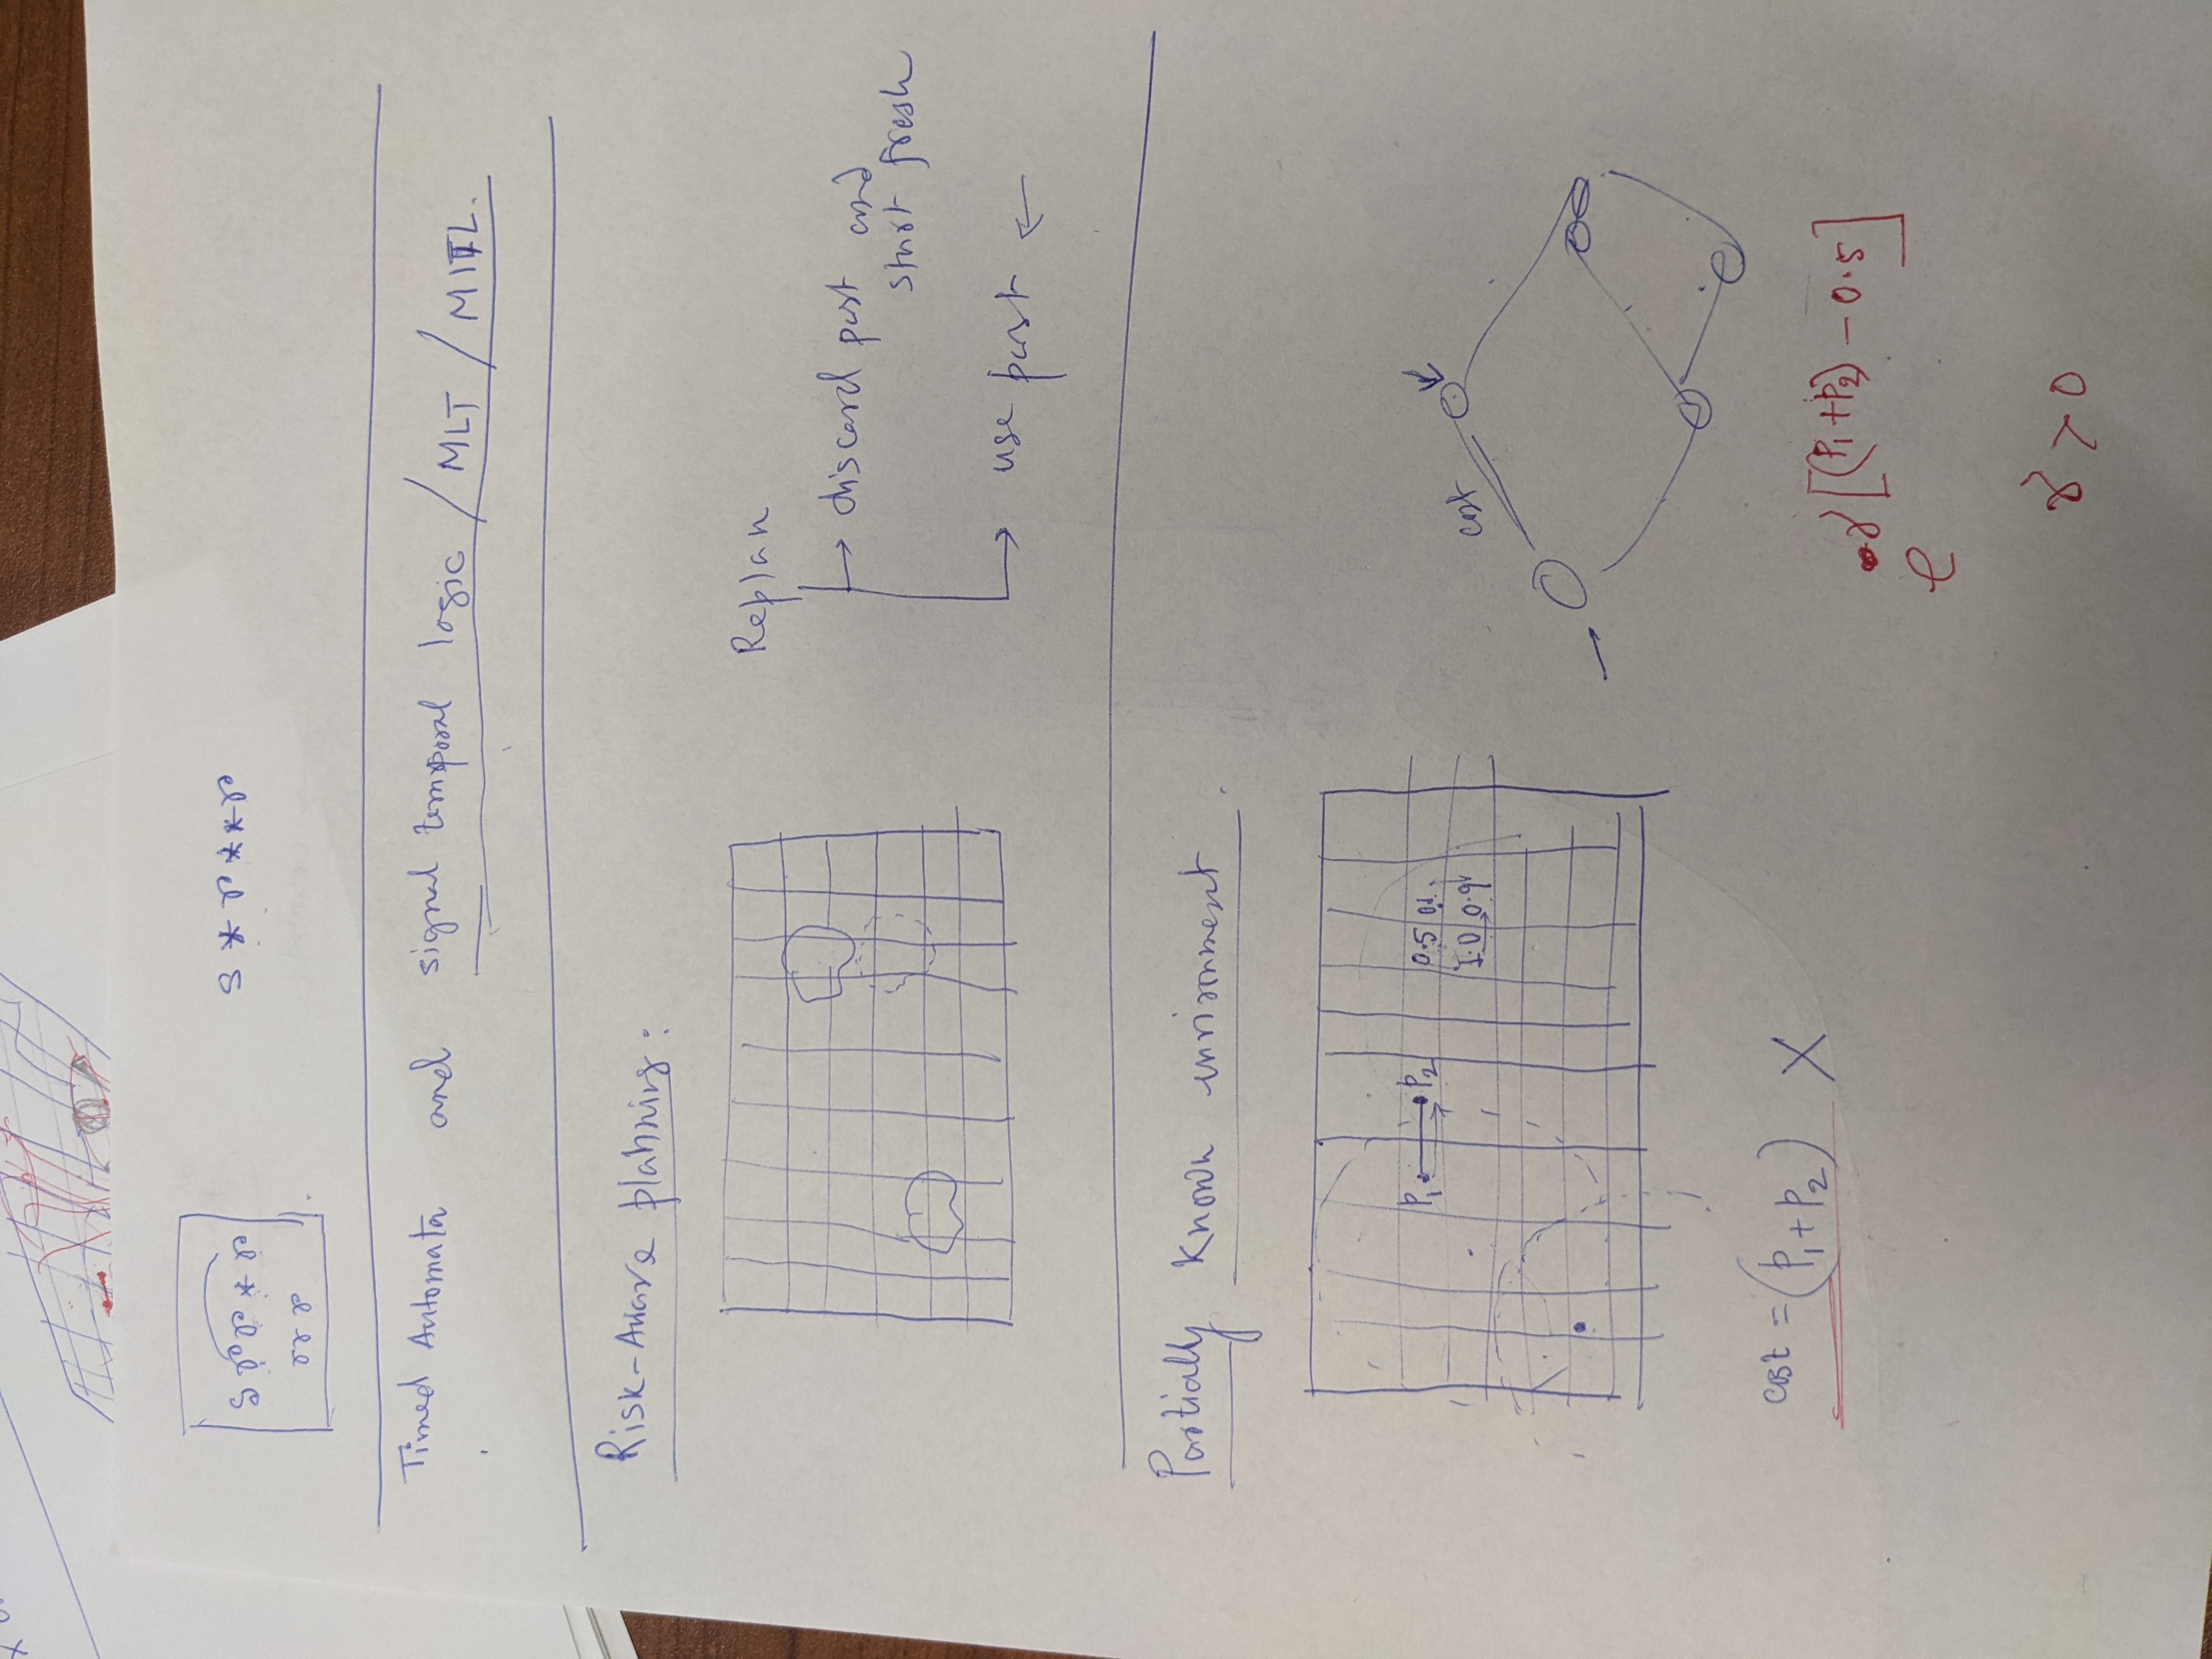 Timed Automata and signal temporal logic / MLT / MITL.
Risk-Aware planning:
Replan
→ discard past and
start fresh
→ use past ←
Partially Known environment
cost
P₁ P₂
0.5 01
1.0 0.91
cost = (P₁ + P₂) X
e γ[(P₁+P₂) - 0.5]
γ > 0